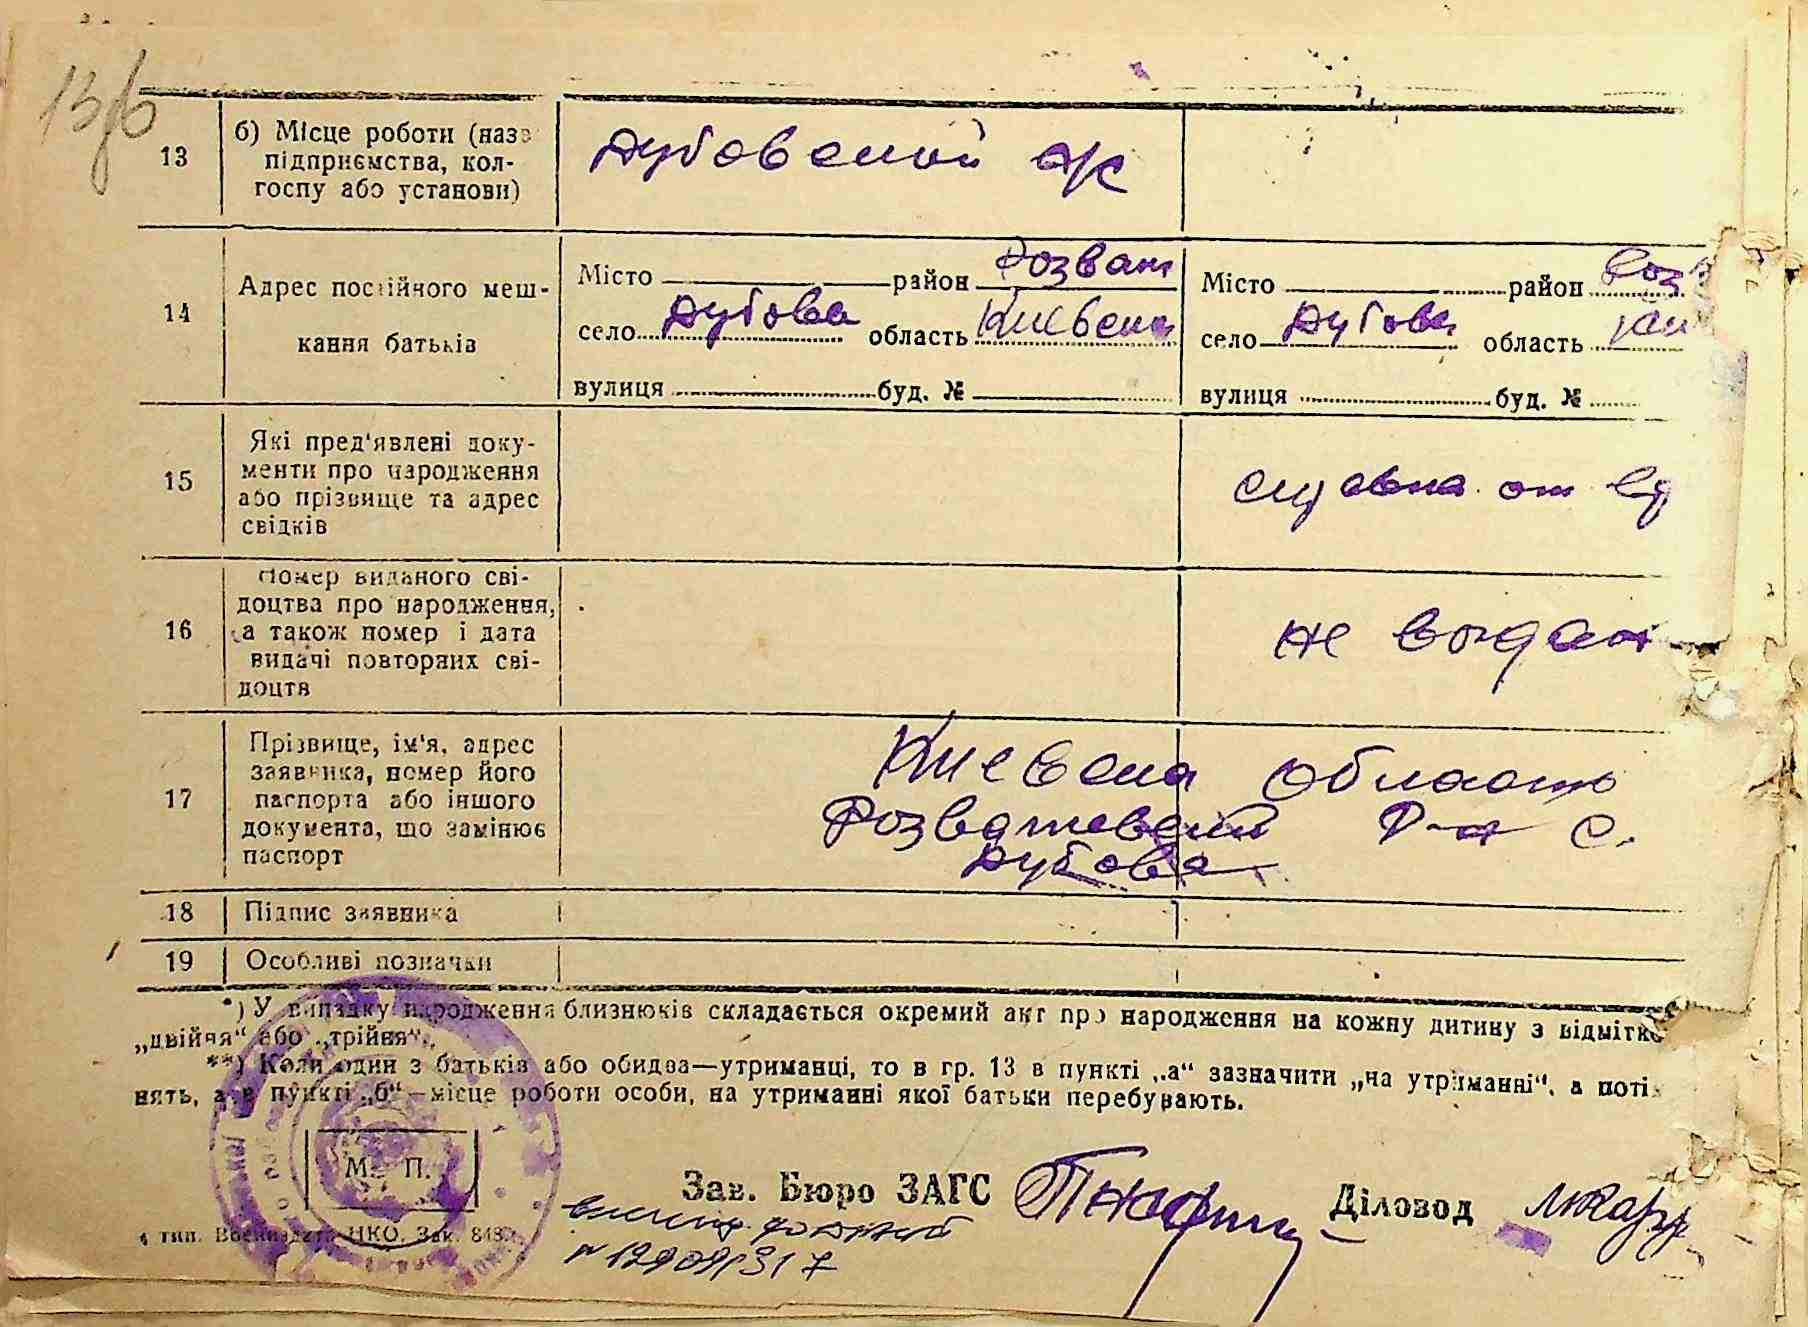 13/б
13
б) Місце роботи (наз
підприємства, кол-
госпу або установи)
Дубовский
14
Адрес постійного меш-
кання батьків
Місто район Розваж
село Дубова область Киевска
вулиця буд. №
Місто район Роз
село Дубова область
вулиця буд. №
15
Які пред'явлені доку-
менти про народження
або прізвище та адрес
свідків
от
16
Номер виданого сві-
доцтва про народження,
а також номер і дата
видачі повторних сві-
доцтв
не выдан
17
Прізвище, ім'я, адрес
заявника, номер його
паспорта або іншого
документа, що замінює
паспорт
Киевска область
Розважевский р-н с.
Дубова
18
Підпис заявника
19
Особливі позначки
*) У випадку народження близнюків складається окремий акт про народження на кожну дитину з відмітко
„двійня“ або „трійня“.
**) Коли один з батьків або обидва—утриманці, то в гр. 13 в пункті „а“ зазначити „на утриманні“, а поті
нять, а в пункті „б“—місце роботи особи, на утриманні якої батьки перебувають.
М. П.
Зав. Бюро ЗАГС
Діловод
4 тип. Воениздата НКО. Зак. 848